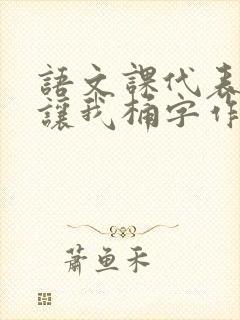 語文課代表
讓我桶字作
蕭魚禾